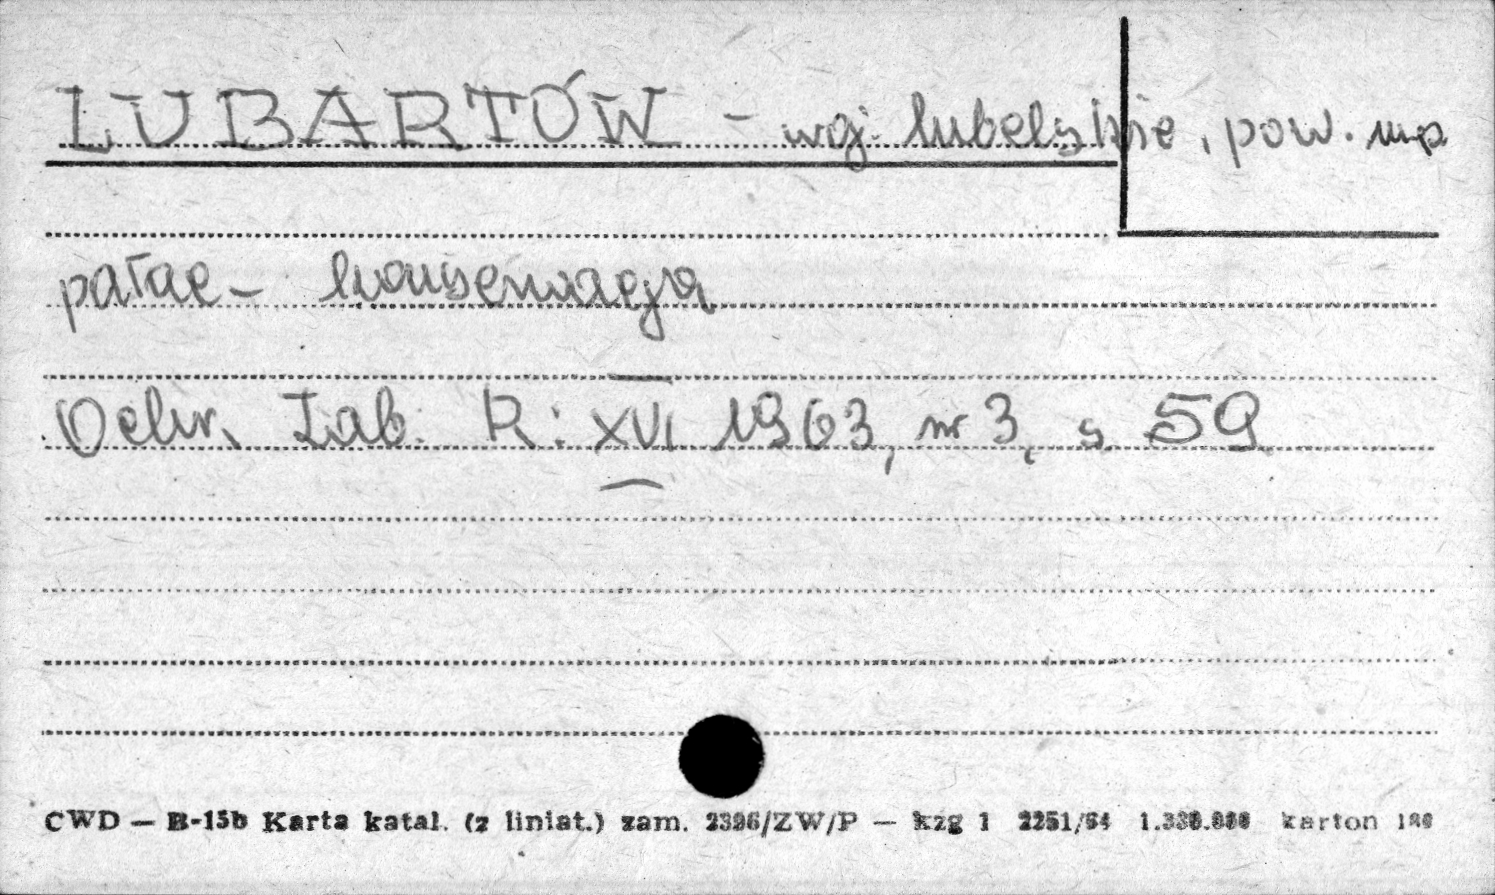 LUBARTÓW - woj. lubelskie, pow. mp
pałac - konserwacja
Ochr. Zab. R: XVI 1963, nr 3, s 59
CWD — B-15b Karta katal. (z liniat.) zam. 2396/ZW/P — kzg 1 2251/64 karton